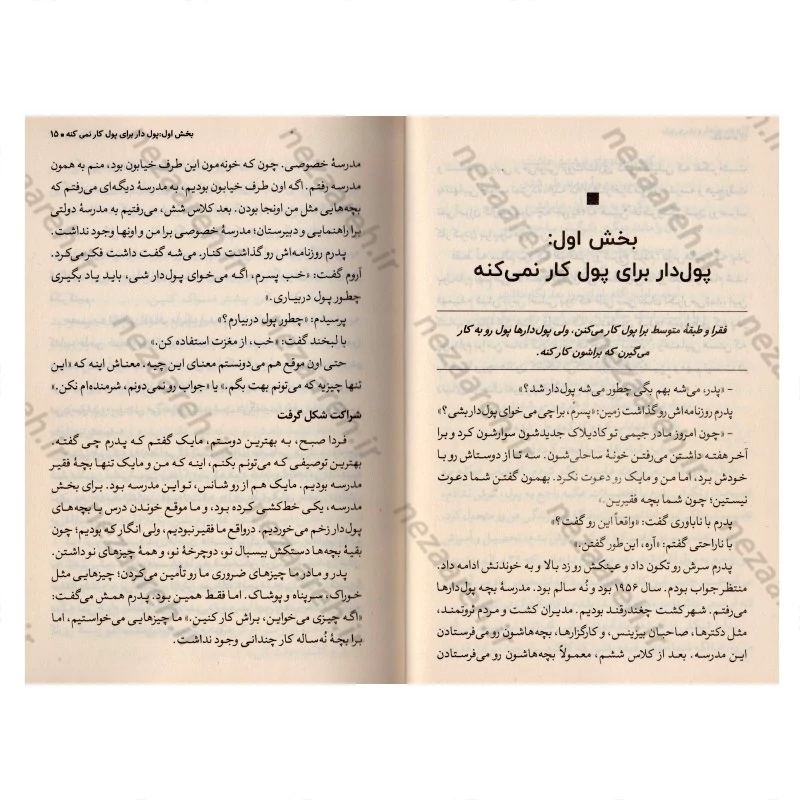 ■
بخش اول:
پول‌دار برای پول کار نمی‌کنه
فقرا و طبقهٔ متوسط برا پول کار می‌کنن، ولی پول‌دارها پول رو به کار
می‌گیرن که براشون کار کنه.
- «پدر، می‌شه بهم بگی چطور می‌شه پول‌دار شد؟»
پدرم روزنامه‌اش رو گذاشت زمین: «پسرم، برا چی می‌خوای پول‌دار بشی؟»
- «چون امروز مادر جیمی تو کادیلاک جدیدشون سوارشون کرد و برا
آخر هفته داشتن می‌رفتن خونهٔ ساحلی‌شون. سه تا از دوستاش رو با
خودش برد، اما من و مایک رو دعوت نکرد. بهمون گفتن شما دعوت
نیستین؛ چون شما بچه فقیرین.»
پدرم با ناباوری گفت: «واقعاً این رو گفت؟»
با ناراحتی گفتم: «آره، این‌طور گفتن.»
پدرم سرش رو تکون داد و عینکش رو زد بالا و به خوندنش ادامه داد.
منتظر جواب بودم. سال ۱۹۵۶ بود و نُه سالم بود. مدرسهٔ بچه پول‌دارها
می‌رفتم. شهر کشت چغندرقند بودیم. مدیران کشت و مردم ثروتمند،
مثل دکترها، صاحبان بیزینس، و کارگزارها، بچه‌هاشون رو می‌فرستادن
این مدرسه. بعد از کلاس ششم، معمولاً بچه‌هاشون رو می‌فرستادن
بخش اول: پول دار برای پول کار نمی کنه ● ۱۵
مدرسهٔ خصوصی. چون که خونه‌مون این طرف خیابون بود، منم به همون
مدرسه رفتم. اگه اون طرف خیابون بودیم، به مدرسهٔ دیگه‌ای می‌رفتم که
بچه‌هایی مثل من اونجا بودن. بعد کلاس شش، می‌رفتیم به مدرسهٔ دولتی
برا راهنمایی و دبیرستان؛ مدرسهٔ خصوصی برا من و اونها وجود نداشت.
پدرم روزنامه‌اش رو گذاشت کنار. می‌شه گفت داشت فکر می‌کرد.
آروم گفت: «خب پسرم، اگه می‌خوای پول‌دار شی، باید یاد بگیری
چطور پول دربیاری.»
پرسیدم: «چطور پول دربیارم؟»
با لبخند گفت: «خب، از مغزت استفاده کن.»
حتی اون موقع هم می‌دونستم معنای این چیه. معناش اینه که «این
تنها چیزیه که می‌تونم بهت بگم.» یا «جواب رو نمی‌دونم، شرمنده‌ام نکن.»
شراکت شکل گرفت
فردا صبح، به بهترین دوستم، مایک گفتم که پدرم چی گفته.
بهترین توصیفی که می‌تونم بکنم، اینه که من و مایک تنها بچهٔ فقیر
مدرسه بودیم. مایک هم از رو شانس، تو این مدرسه بود. برای بخش
مدرسه، یکی خط‌کشی کرده بود، و ما موقع خوندن درس با بچه‌های
پول‌دار زخم می‌خوردیم. درواقع ما فقیر نبودیم، ولی انگار که بودیم؛ چون
بقیهٔ بچه‌ها دستکش بیسبال نو، دوچرخهٔ نو، و همهٔ چیزهای نو داشتن.
پدر و مادر ما چیزهای ضروری ما رو تأمین می‌کردن؛ چیزهایی مثل
خوراک، سرپناه و پوشاک. اما فقط همین بود. پدرم همش می‌گفت:
«اگه چیزی می‌خواین، براش کار کنین.» ما چیزهایی می‌خواستیم، اما
برا بچهٔ نُه‌ساله کار چندانی وجود نداشت.
nezaareh.ir